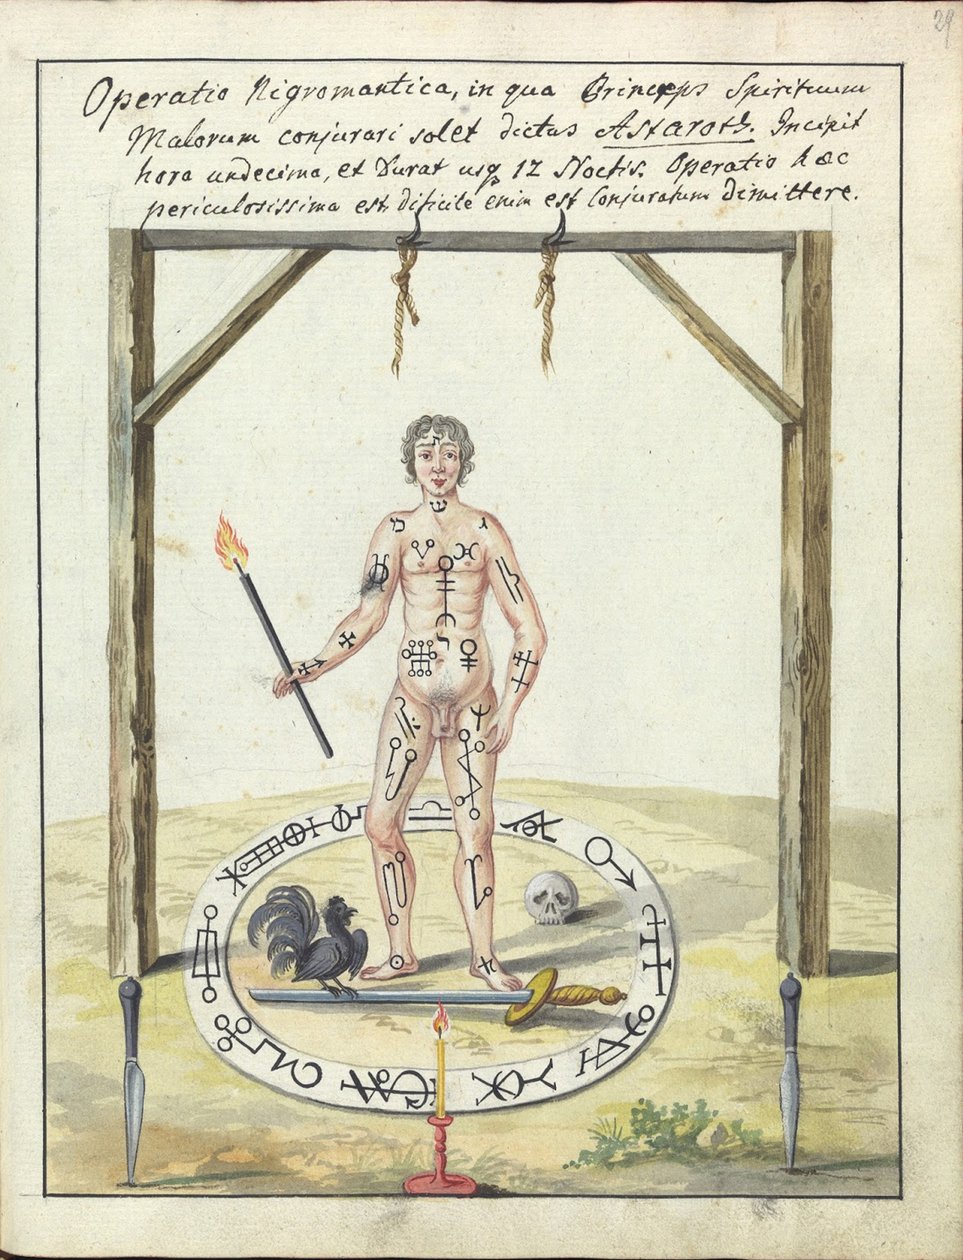 29
Operatio Nigromantica, in qua Princeps Spirituum
Malorum conjurari solet dictus Astaroth. Incipit
hora undecima, et Durat usq 12 Noctis. Operatio haec
periculosissima est, dificile enim est Conjuratum dimittere.